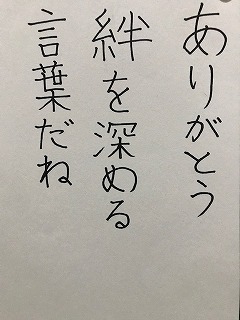 ありがとう
絆を深める
言葉だね